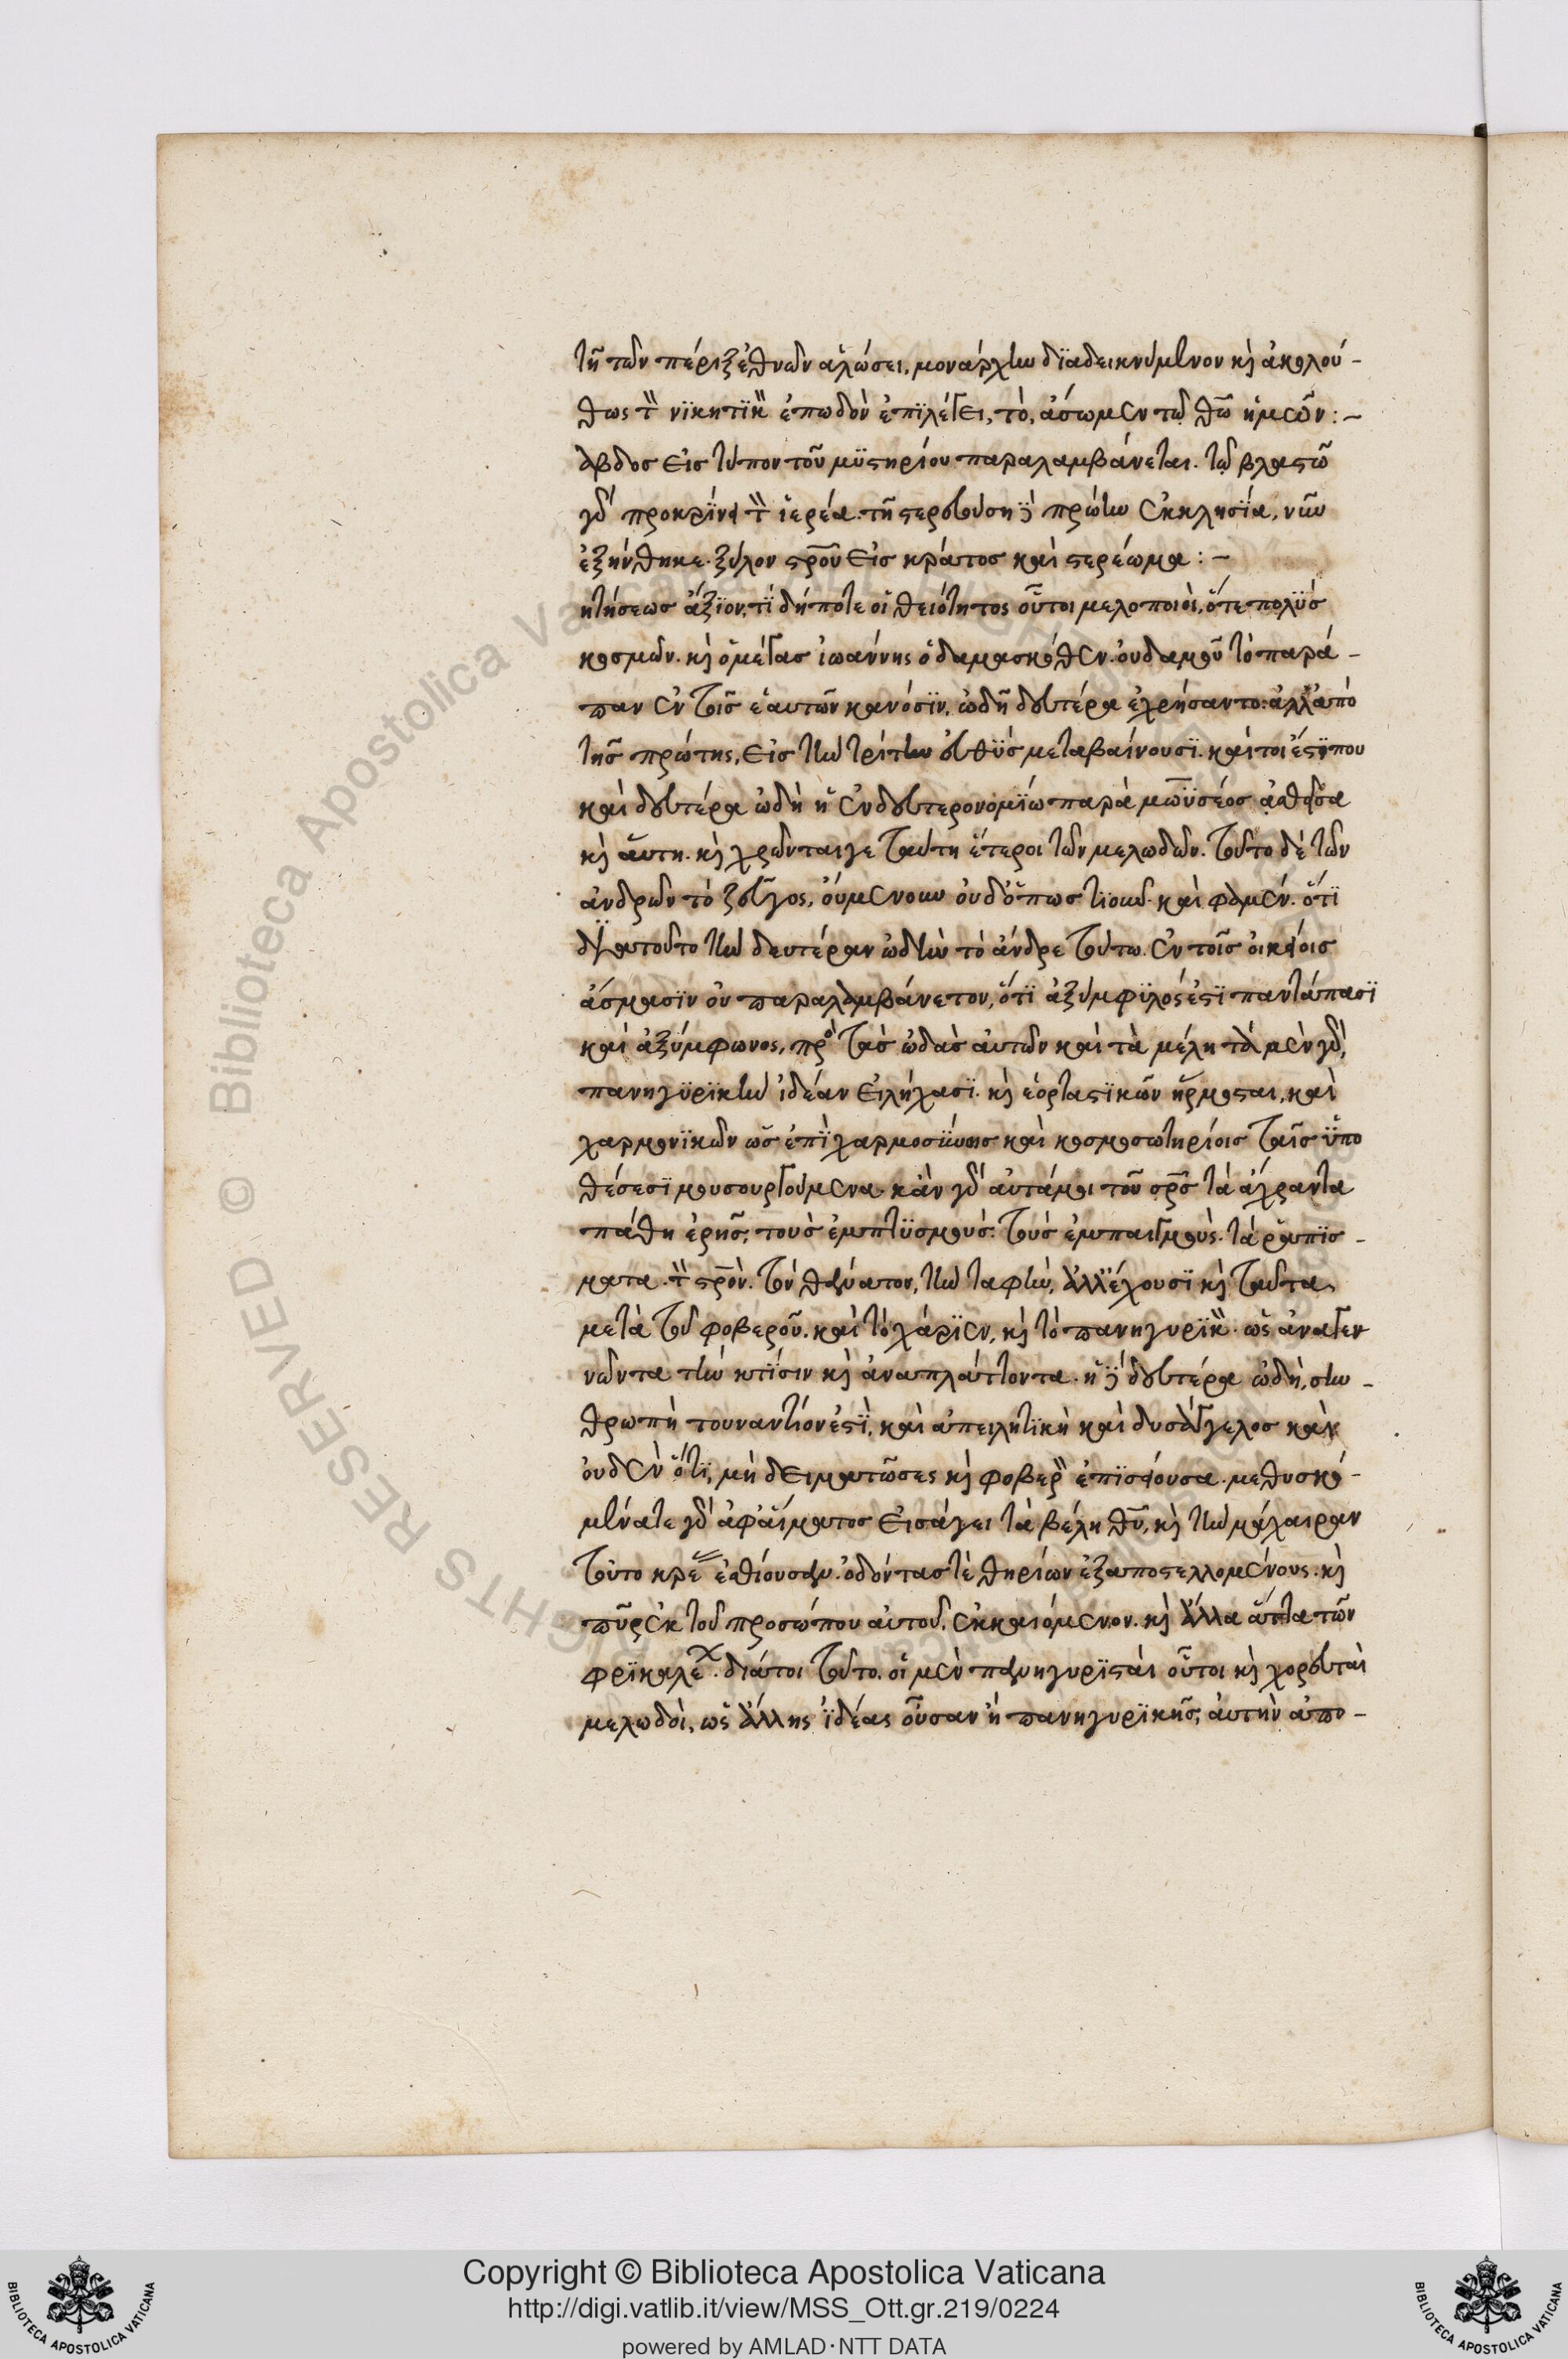 τῆ τῶν πέριξ ἐθνῶν ἁλώσει, μονάρχην διαδεικνύμενον κὶ ἀκολού-
θως τὸν νϊκητϊκὸν ἐπωδὸν ἐπϊλέγει, τὸ, ἄσωμεν τῷ θῶ ἡμῶν:-
άβδος εἰς τύπον τοῦ μϋστηρίου παραλαμβάνεται. τῷ βλαστῶ
γὰρ προκρίνει τὸν ἱερέα. τῆ στειρευούση δὲ πρώην ἐκκλησία, νῦν
ἐξήνθηκε. ξύλον στροῦ εἰς κράτος καὶ στερέωμα:-
ητήσεως ἄξϊον, τί δήποτε οἱ θειότητος οὗτοι μελοποιοὶ, ὅτε πολϋς
κοσμῶν. κὶ ὁ μέγας ἰωάννης ὁ δαμασκόθεν. οὐδαμοῦ τὸ παρά-
παν ἐν τοῖς ἑαυτῶν κανόσϊν, ὠδῆ δευτέρα ἐχρήσαντο. ἀλλ' ἀπὸ
τῆς πρώτης, εἰς τὴν τρίτην εὐθϋς μεταβαίνουσϊ. καίτοι ἐστί που
καὶ δευτέρα ὠδὴ ἡ ἐν δευτερονομϊω παρὰ μωϋσέος ἀσθεῖσα
κὶ αὕτη. κὶ χρῶνται γε ταύτη ἕτεροι τῶν μελωδῶν. τοῦτο δὲ τῶν
ἀνδρῶν τὸ ζεῦγος, οὐμενουν οὐδ' ὅπως τιοῦν. καὶ φαμέν. ὅτϊ
δι' αυτοῦτο τὴν δευτέραν ὠδὴν τὸ ἄνδρε τούτω. ἐν τοῖς οἰκείοις
ἄσμασϊν οὐ παραλαμβάνετον, ὅτϊ ἀξύμφϋλός ἐστϊ παντάπασϊ
καὶ ἀξύμφωνος, πρὸς τὰς ὠδὰς αὐτῶν καὶ τὰ μέλη τὰ μὲν γὰρ,
πανηγϋρϊκὴν ἰδέαν εἰλήχασϊ. κὶ ἑορταστϊκῶν ἥρμοσται, καὶ
χαρμονϊκῶν ὡς ἐπϊ χαρμοσύνοις καὶ κοσμοσωτηρίοις ταῖς ὑπο
θέσεσϊ μουσουργούμενα. κἂν γὰρ αὐτά μοι τοῦ σρς τὰ ἄχραντα
πάθη ἐρῆς, τοὺς ἐμπτϋσμούς. τοὺς ἐμπαιγμοὺς. τὰ ῥαπϊσ-
ματα. τὸν στρόν. τὸν θάνατον, τὴν ταφὴν, ἀλλ' ἔχουσϊ κὶ ταῦτα
μετὰ τοῦ φοβεροῦ. καὶ τὸ χάρϊεν, κὶ τὸ πανηγυρϊκὸν. ὡς ἀναγεν
νῶντα τὴν κτίσιν κὶ ἀναπλάττοντα. ἡ δὲ δευτέρα ὠδὴ, σκυ-
θρωπὴ τουναντίον ἐστϊ, καὶ ἀπειλητϊκὴ καὶ δυσάγγελος καὶ
οὐδὲν ὅτϊ, μὴ δειματῶδες κὶ φοβερὸν ἐπϊσείουσα. μεθυσκό-
μενά τε γὰρ ἀφ' αἵματος εἰσάγει τὰ βέλη θῦ, κὶ τὴν μάχαιραν
τοῦτο κρέα ἐσθίουσαν. ὀδόντας τὲ θηρίων ἐξαποστελλομένους. κὶ
πῦρ ἐκ τοῦ προσώπου αὐτοῦ, ἐκκαιόμενον. κὶ ἄλλα ἄττα τῶν
φρϊκαλέων. διάτοι τοῦτο. οἱ μὲν πανηγυρϊσταὶ οὗτοι κὶ χορευταὶ
μελωδοὶ, ὡς ἄλλης ἰδέας οὖσαν ἢ πανηγυρϊκῆς, αὐτὴν ἀπο-
Biblioteca Apostolica Vaticana
RIGHTS RESERVED ©
Copyright © Biblioteca Apostolica Vaticana
http://digi.vatlib.it/view/MSS_Ott.gr.219/0224
powered by AMLAD·NTT DATA
BIBLIOTECA APOSTOLICA VATICANA
BIBLIOTECA APOSTOLICA VATICANA